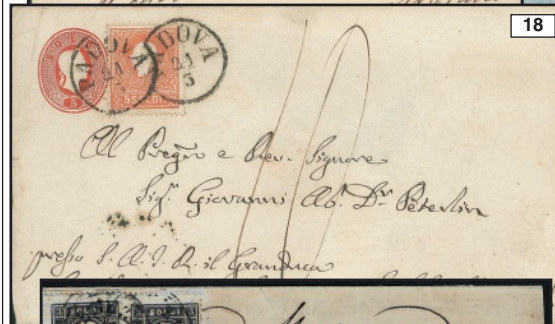 18
PADOVA
21
3
PADOVA
21
3
5
5 SOLDI
Al Pregio e Rev. Signore
Sigr. Giovanni Ab. Dr. Peterlin
presso S. A. I. R. il Granduca
SOLDI
SOLDI